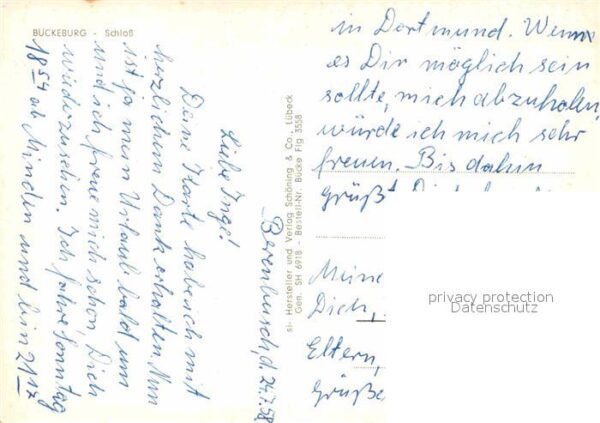 BÜCKEBURG - Schloß
Berenbusch, d. 24.7.58
Liebe Inge!
Deine Karte habe ich mit
herzlichem Dank erhalten. Nun
ist ja mein Urlaub bald um
und ich freue mich schon, Dich
wiederzusehen. Ich fahre Sonntag
18⁵⁴ ab Minden und bin 21¹⁷
in Dortmund. Wenn
es Dir möglich sein
sollte, mich abzuholen,
würde ich mich sehr
freuen. Bis dahin
grüßt
Meine
Dich,
Eltern,
Grüße
si- Hersteller und Verlag Schöning & Co., Lübeck
Gen. SH 6918 - Bestell-Nr. Bücke Flg 3558
privacy protection
Datenschutz